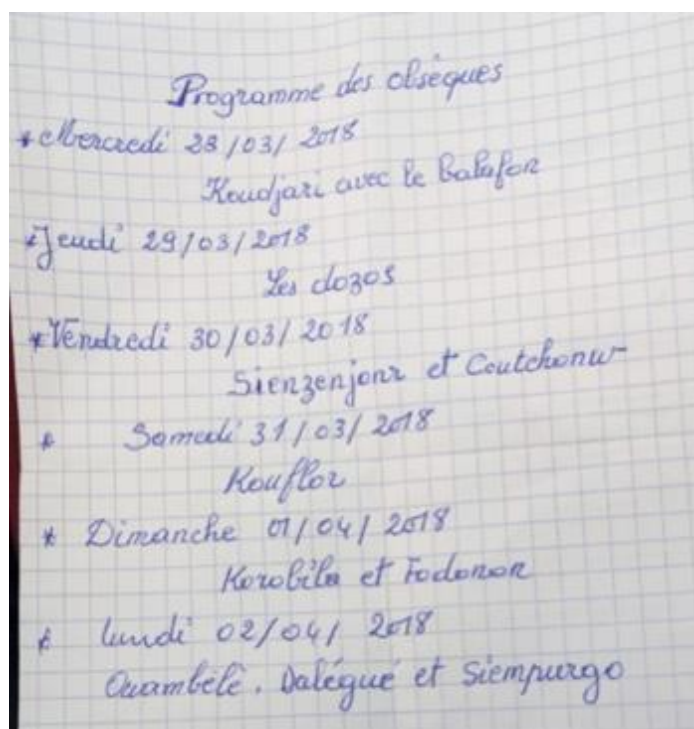 Programme des obsèques
* Mercredi 28/03/2018
Koudjari avec le balafon
* Jeudi 29/03/2018
Les dozos
* Vendredi 30/03/2018
et
* Samedi 31/03/2018
Kouflor
* Dimanche 01/04/2018
Korobila et Fodonon
* lundi 02/04/2018
Ouambélé. Dalégué et Siempurgo